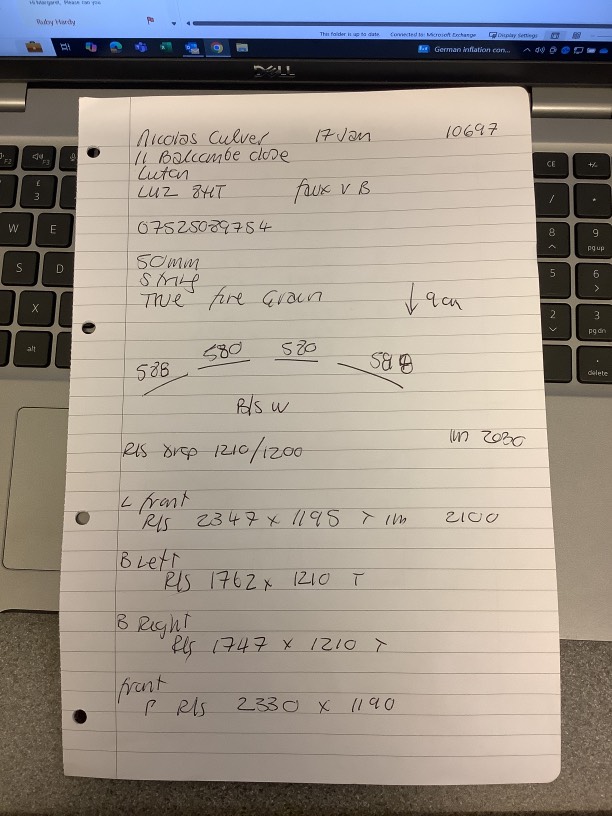 Hi Margaret, Please can you
Ruby Hardy
This folder is up to date. Connected to: Microsoft Exchange Display Settings
German inflation con...
DELL
Nicolas Culver 17 Jan 10697
11 Balcombe close
Luton
LU2 8HT faux V B
07525089754
50mm
String
True fire Grain ↓ 9cm
588 580 580 588
B/S W
R/S drop 1210/1200 1m 2030
L front
R/S 2347 x 1195 T 1m 2100
B Left
R/S 1762 x 1210 T
B Right
R/S 1747 x 1210 T
front
R/S 2330 x 1190
F2
F3
£
3
W
E
S
D
X
alt
CE
+/-
/
*
8
9
pg up
5
6
2
3
pg dn
.
delete